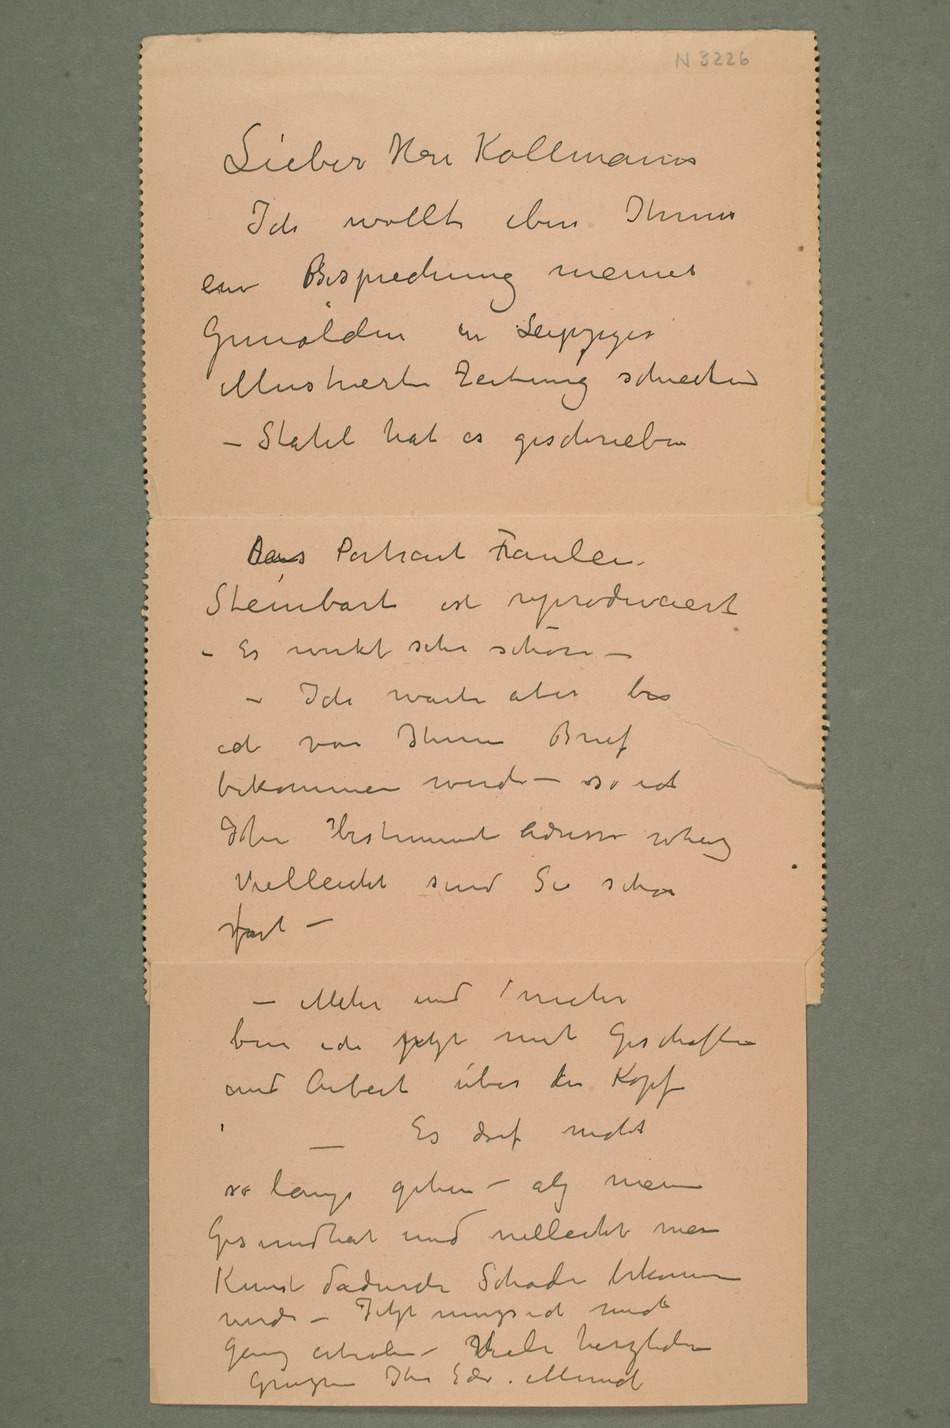 N 3226
Lieber Herr Kollmann
Ich wollte eben Ihnen
ein Besprechung meines
Gemälden in Leipziger
illustrierte Zeitung schicken
– Stahl hat es geschrieben
Das Portrait Fraulein
Steinbart ist reproduciert
– Es wirkt sehr schön –
– Ich warte aber bis
ich von Ihnen Brief
bekommen werde – so ich
Ihre bestimmte Adresse
Vielleicht sind Sie schon
fort –
– Mehr und mehr
bin ich jetzt mit Geschäften
und Arbeit über den Kopf
– Es darf nicht
so lange gehen – als meine
Gesundheit und vielleicht meine
Kunst dadurch Schade bekommen
werde – Jetzt muss ich mich
ganz erholen – Viele herzlichen
Grüsse Ihr Edv. Munch